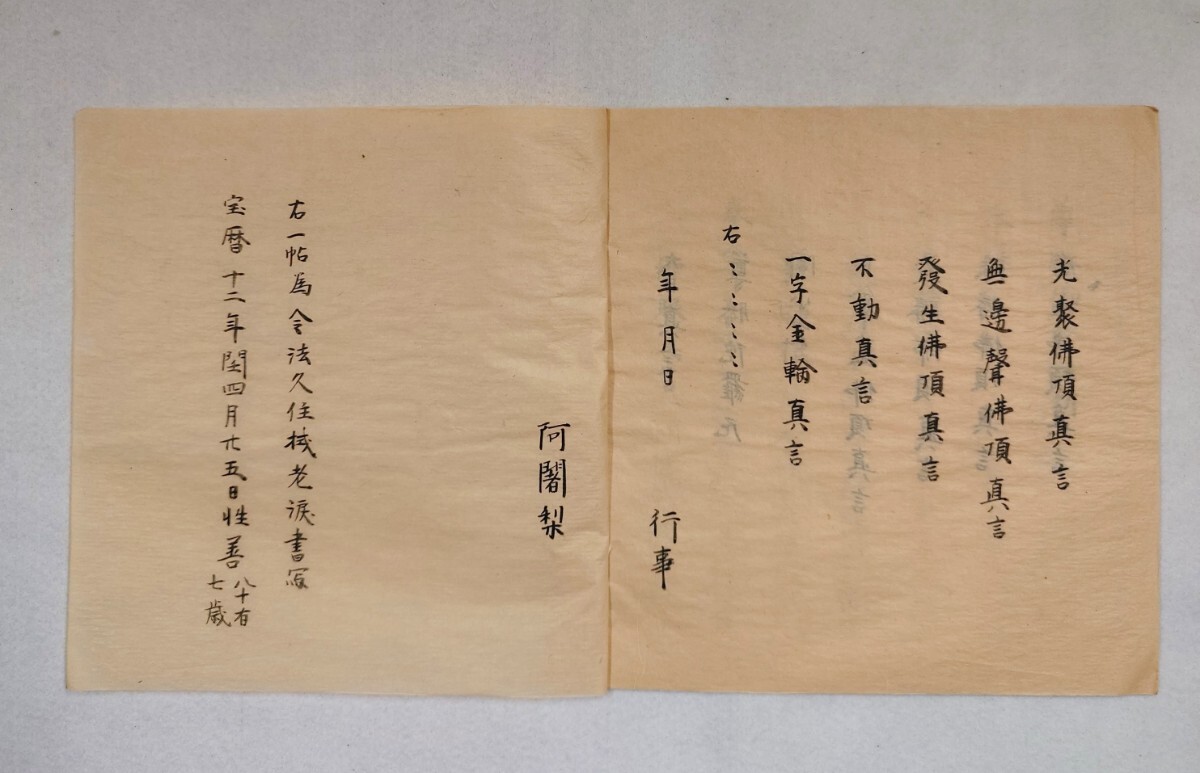 光聚佛頂真言
無邊聲佛頂真言
發生佛頂真言
不動真言
一字金輪真言
右〻〻〻〻
年月日　行事
阿闍梨
右一帖為令法久住拭老淚書寫
宝暦十二年閏四月廿五日性善八十有七歳